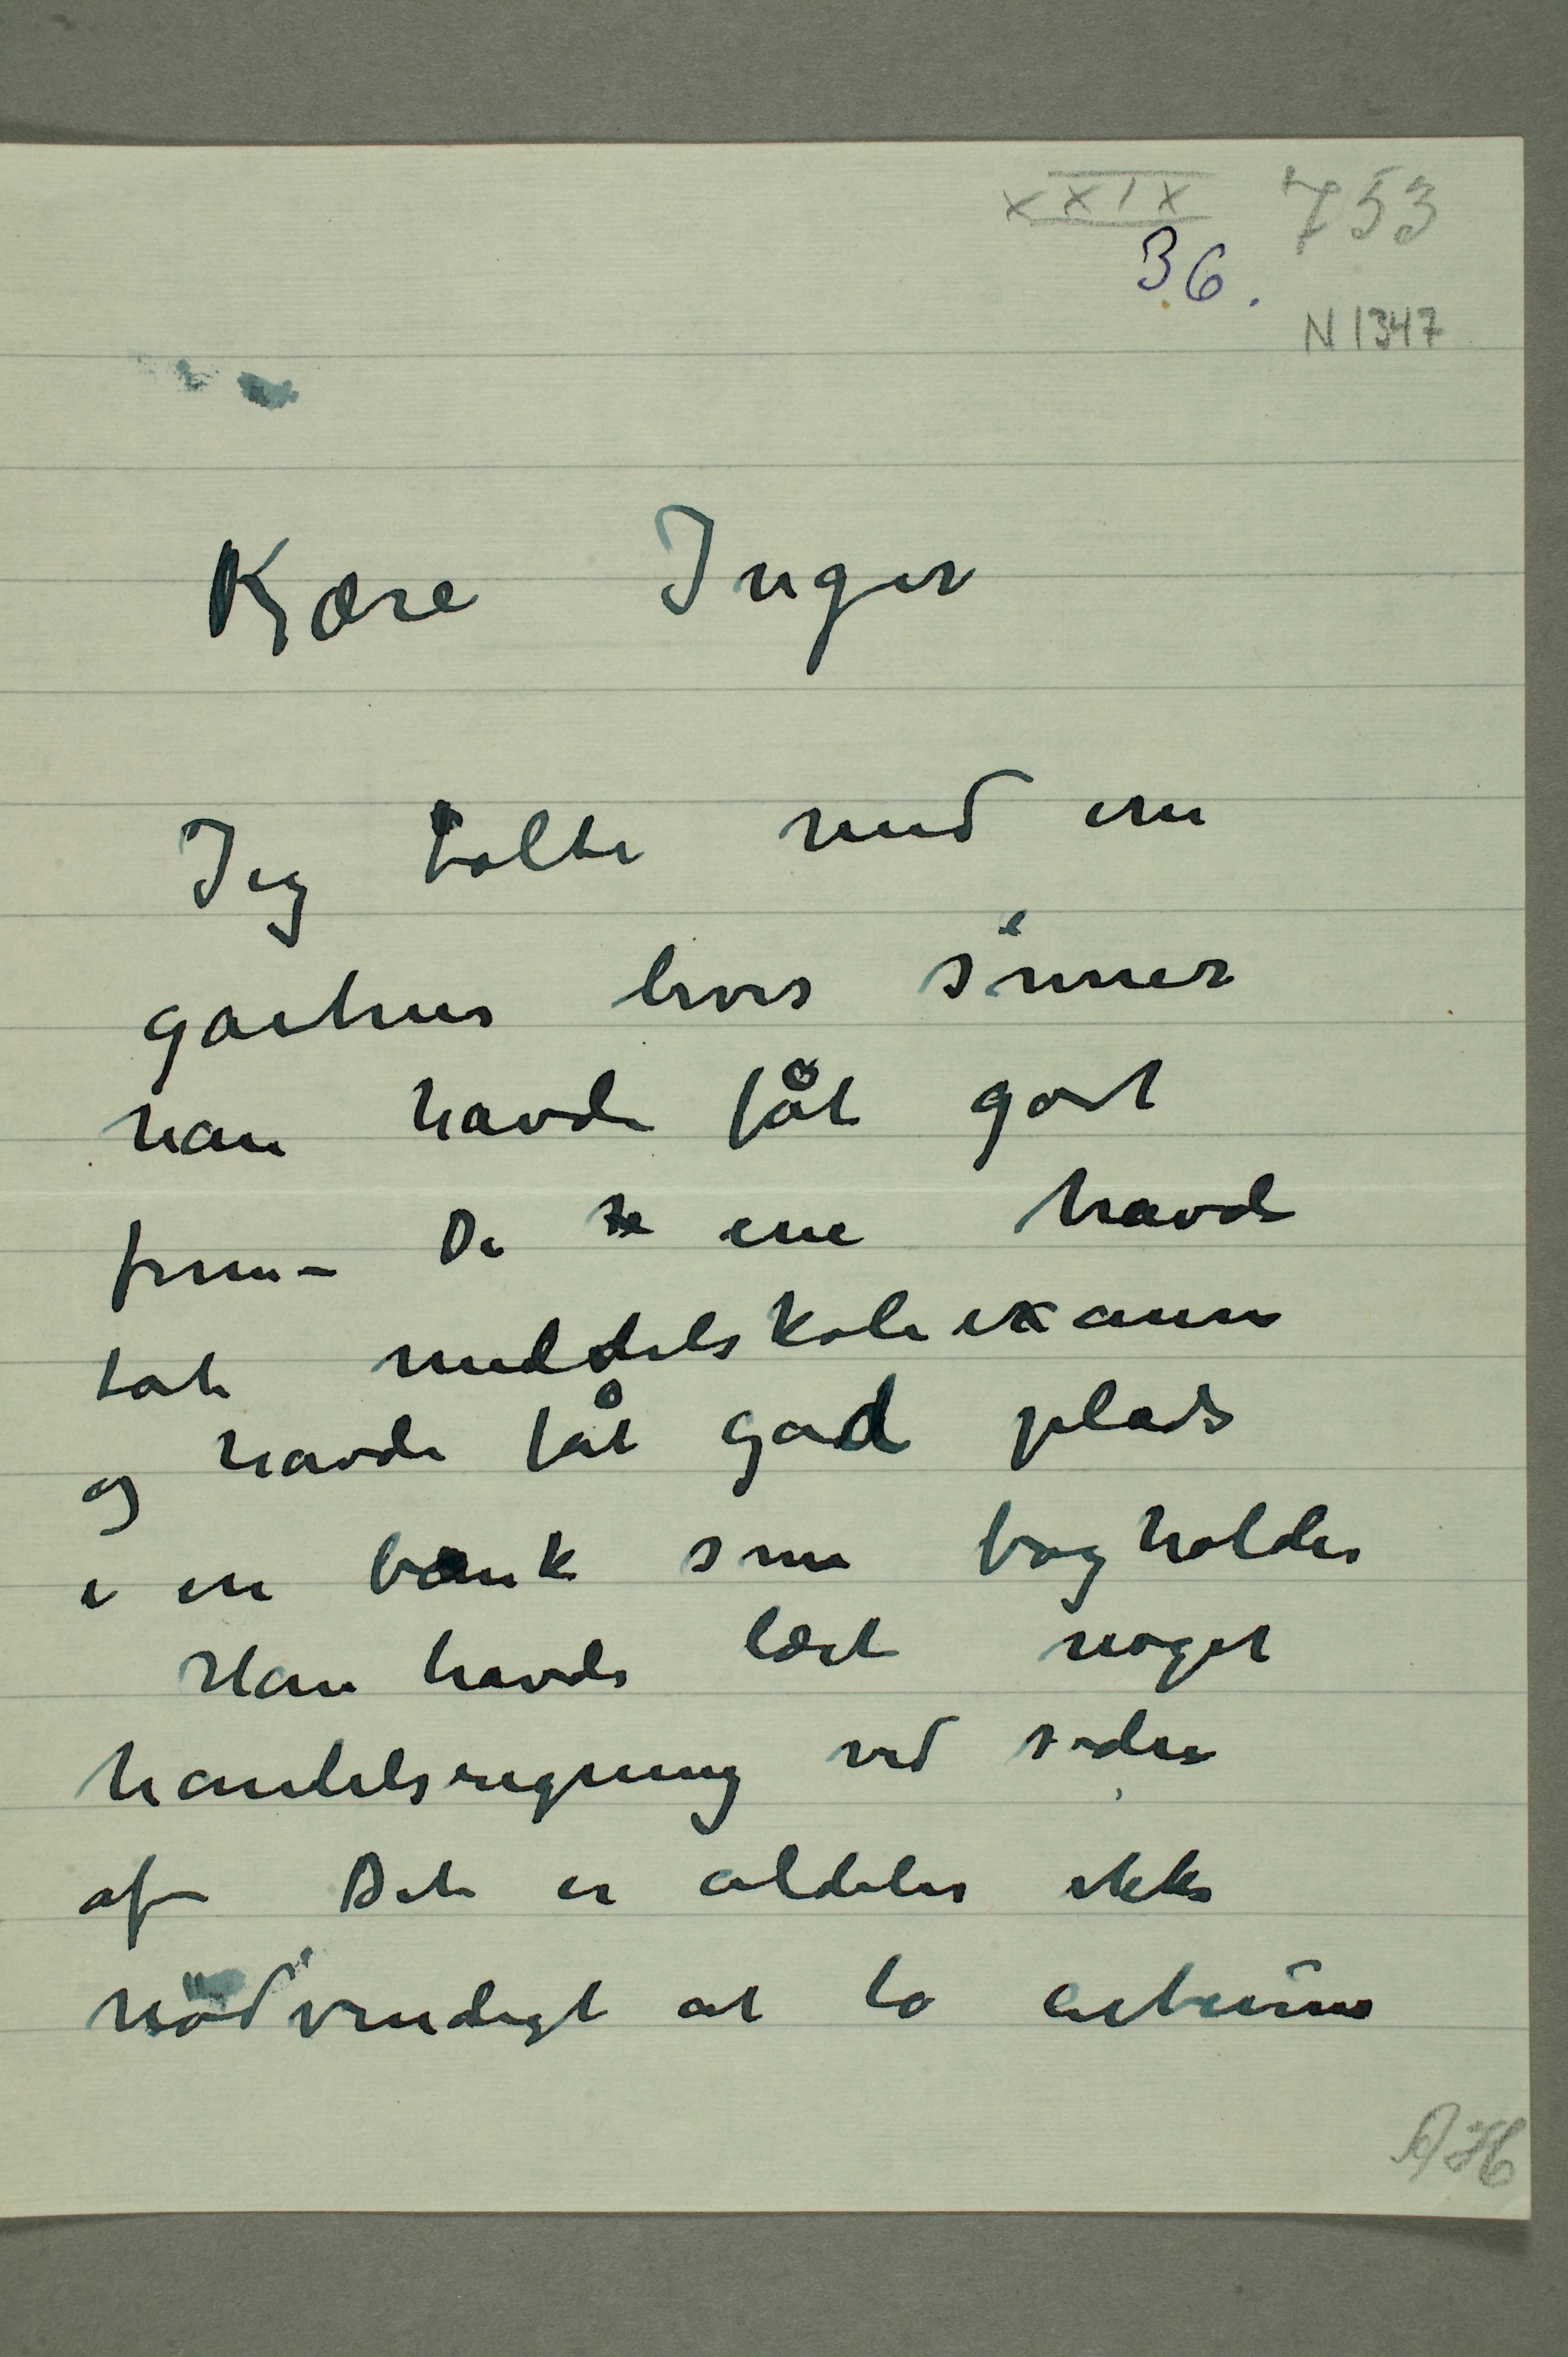 XXIX 753
36.
N 1347
Kjære Inger
Jeg talte med en
gartner hvis sønner
han havde fåt godt
frem – De ene havde
tat middelskoleexamen
og havde fåt god plads
i en bank som bogholder
Han havde lært noget
handelsregning ved siden
af – Det er aldeles ikke
nødvendigt at ta artium